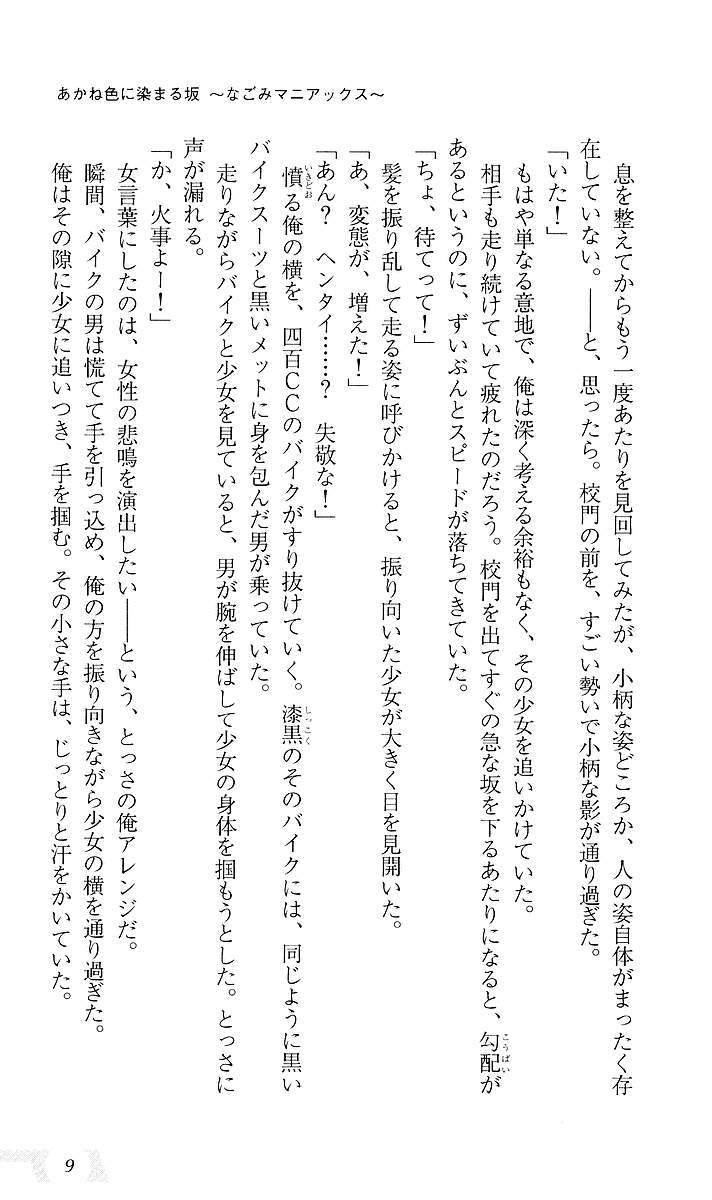 あかね色に染まる坂 ～なごみマニアックス～
息を整えてからもう一度あたりを見回してみたが、小柄な姿どころか、人の姿自体がまったく存
在していない。――と、思ったら。校門の前を、すごい勢いで小柄な影が通り過ぎた。
「いた！」
もはや単なる意地で、俺は深く考える余裕もなく、その少女を追いかけていた。
相手も走り続けていて疲れたのだろう。校門を出てすぐの急な坂を下るあたりになると、勾配が
あるというのに、ずいぶんとスピードが落ちてきていた。
「ちょ、待てって！」
髪を振り乱して走る姿に呼びかけると、振り向いた少女が大きく目を見開いた。
「あ、変態が、増えた！」
「あん？　ヘンタイ……？　失敬な！」
憤る俺の横を、四百ＣＣのバイクがすり抜けていく。漆黒のそのバイクには、同じように黒い
バイクスーツと黒いメットに身を包んだ男が乗っていた。
走りながらバイクと少女を見ていると、男が腕を伸ばして少女の身体を掴もうとした。とっさに
声が漏れる。
「か、火事よー！」
女言葉にしたのは、女性の悲鳴を演出したい――という、とっさの俺アレンジだ。
瞬間、バイクの男は慌てて手を引っ込め、俺の方を振り向きながら少女の横を通り過ぎた。
俺はその隙に少女に追いつき、手を掴む。その小さな手は、じっとりと汗をかいていた。
9